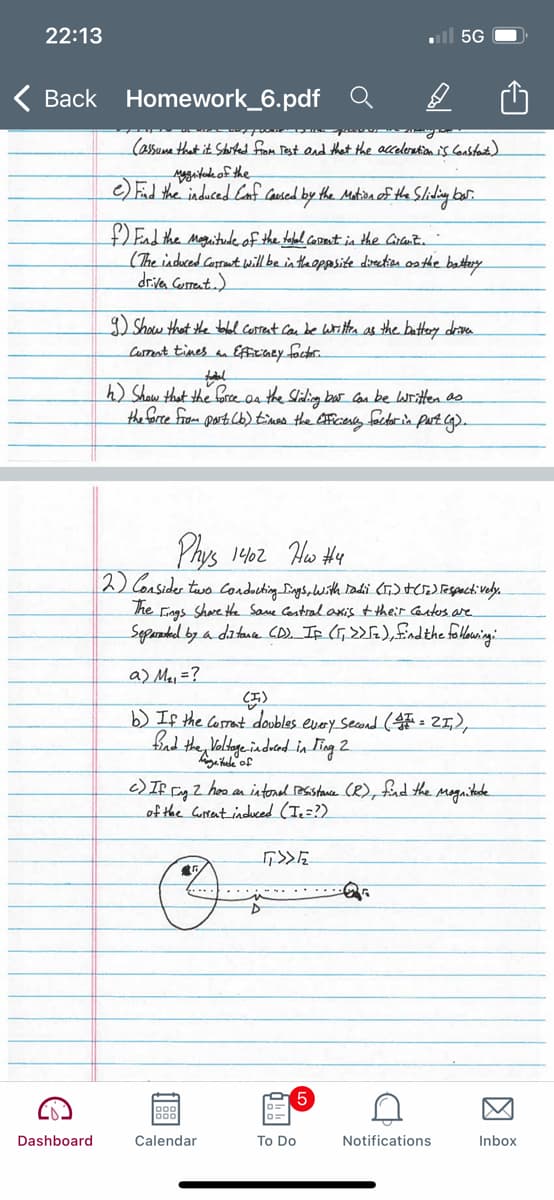 22:13
5G
Back Homework_6.pdf
(assume that it Started from rest and that the acceleration is Constant)
Magnitude of the
e) Find the induced Emf Caused by the Motion of the Sliding bar.
f) Find the Magnitude of the total Current in the Circuit.
(The induced Current will be in the opposite direction as the battery
driven Current.)
g) Show that the total Current Can be written as the battery driven
Current times an Efficiency factor.
total
h) Show that the force on the Sliding bar Can be Written as
the force from part (b) times the Efficiency factor in part (g).
Phys 1402 Hw #4
2) Consider two Conducting Rings, with radii (r₁) + (r₂) respectively.
The rings Share the Same Central axis + their Centers are
Separated by a distance (D). If (r₁ >> r₂), find the following:
a) M₂₁ = ?
(I₁)
b) If the Current doubles every Second (ΔI/Δt = 2I₁),
find the Voltage induced in ring 2
Magnitude of
c) If ring 2 has an internal resistance (R), find the Magnitude
of the Current induced (I₂=?)
r₁ >> r₂
r₁
r₂
D
5
Dashboard Calendar To Do Notifications Inbox